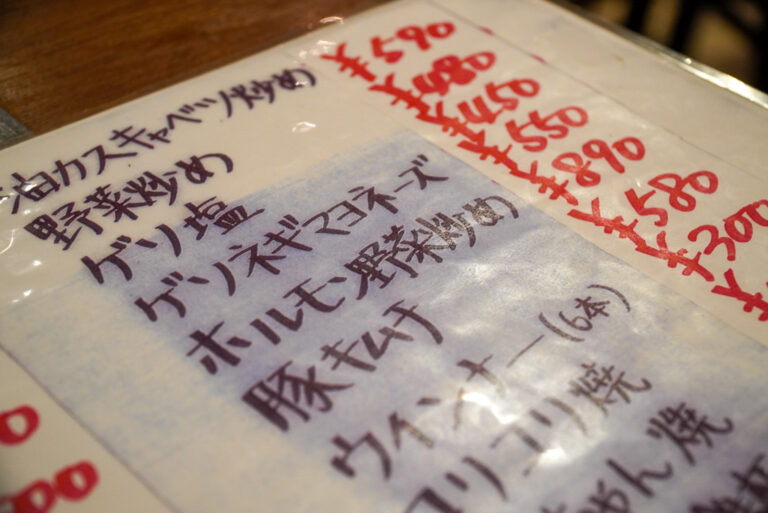 油カスキャベツ炒め ¥590
野菜炒め ¥480
ゲソ塩 ¥450
ゲソネギマヨネーズ ¥550
ホルモン野菜炒め ¥890
豚キムチ ¥580
ウインナー(6本) ¥300
コリコリ焼 ¥
ちゃん焼